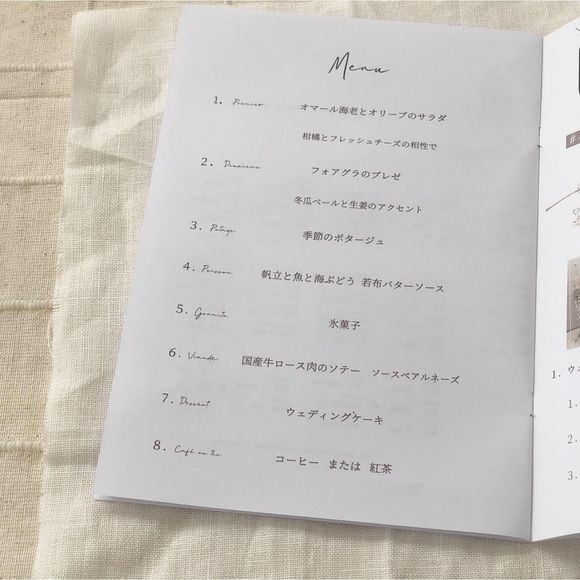 Menu
1. Premier オマール海老とオリーブのサラダ
柑橘とフレッシュチーズの相性で
2. Deuxieme フォアグラのブレゼ
冬瓜ベールと生姜のアクセント
3. Potage 季節のポタージュ
4. Poisson 帆立と魚と海ぶどう 若布バターソース
5. Granite 氷菓子
6. Viande 国産牛ロース肉のソテー ソースベアルネーズ
7. Dessert ウェディングケーキ
8. Café ou the コーヒー または 紅茶
#
1. ウ
1.
2.
3.